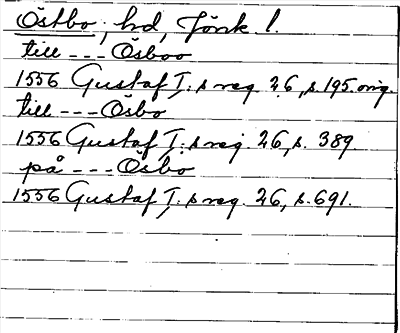 Östbo, hd, Jönk. l.
till --- Ösboo
1556 Gustaf I:s reg. 26, s. 195. orig.
till --- Ösbo
1556 Gustaf I:s reg. 26, s. 389.
på --- Ösbo
1556 Gustaf I:s reg. 26, s. 691.